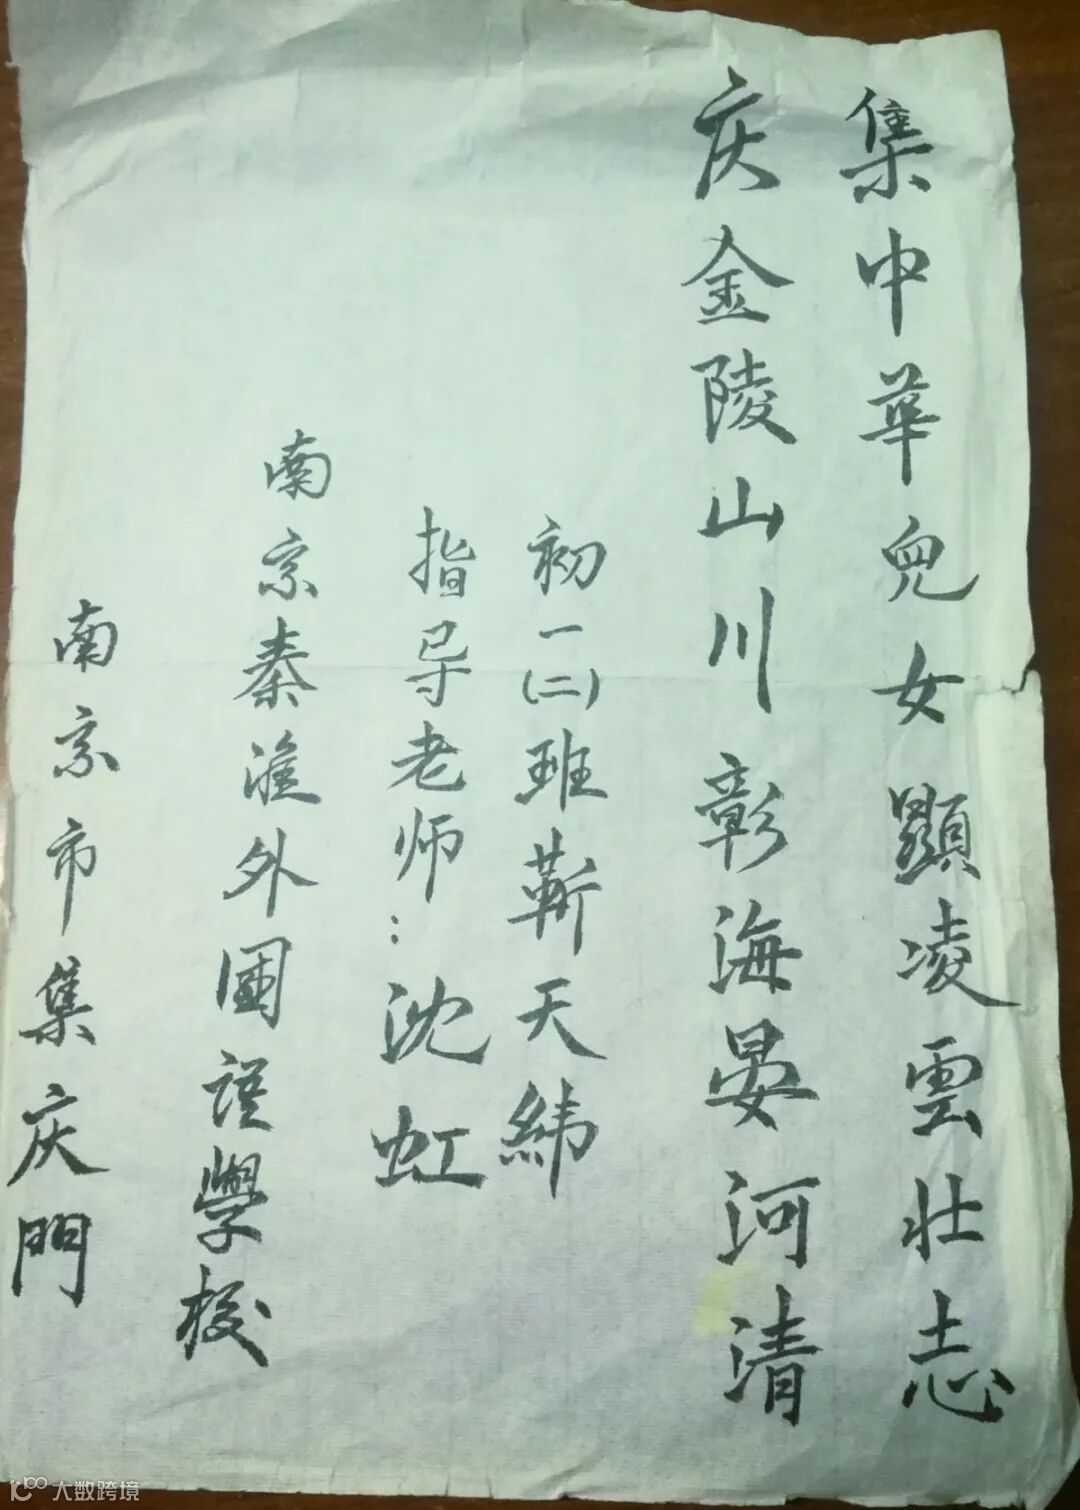 集中華兒女顯凌雲壯志
庆金陵山川彰海晏河清
初一(二)班蕲天緯
指导老师:沈虹
南京秦淮外國語學校
南京市集庆門
大数跨境